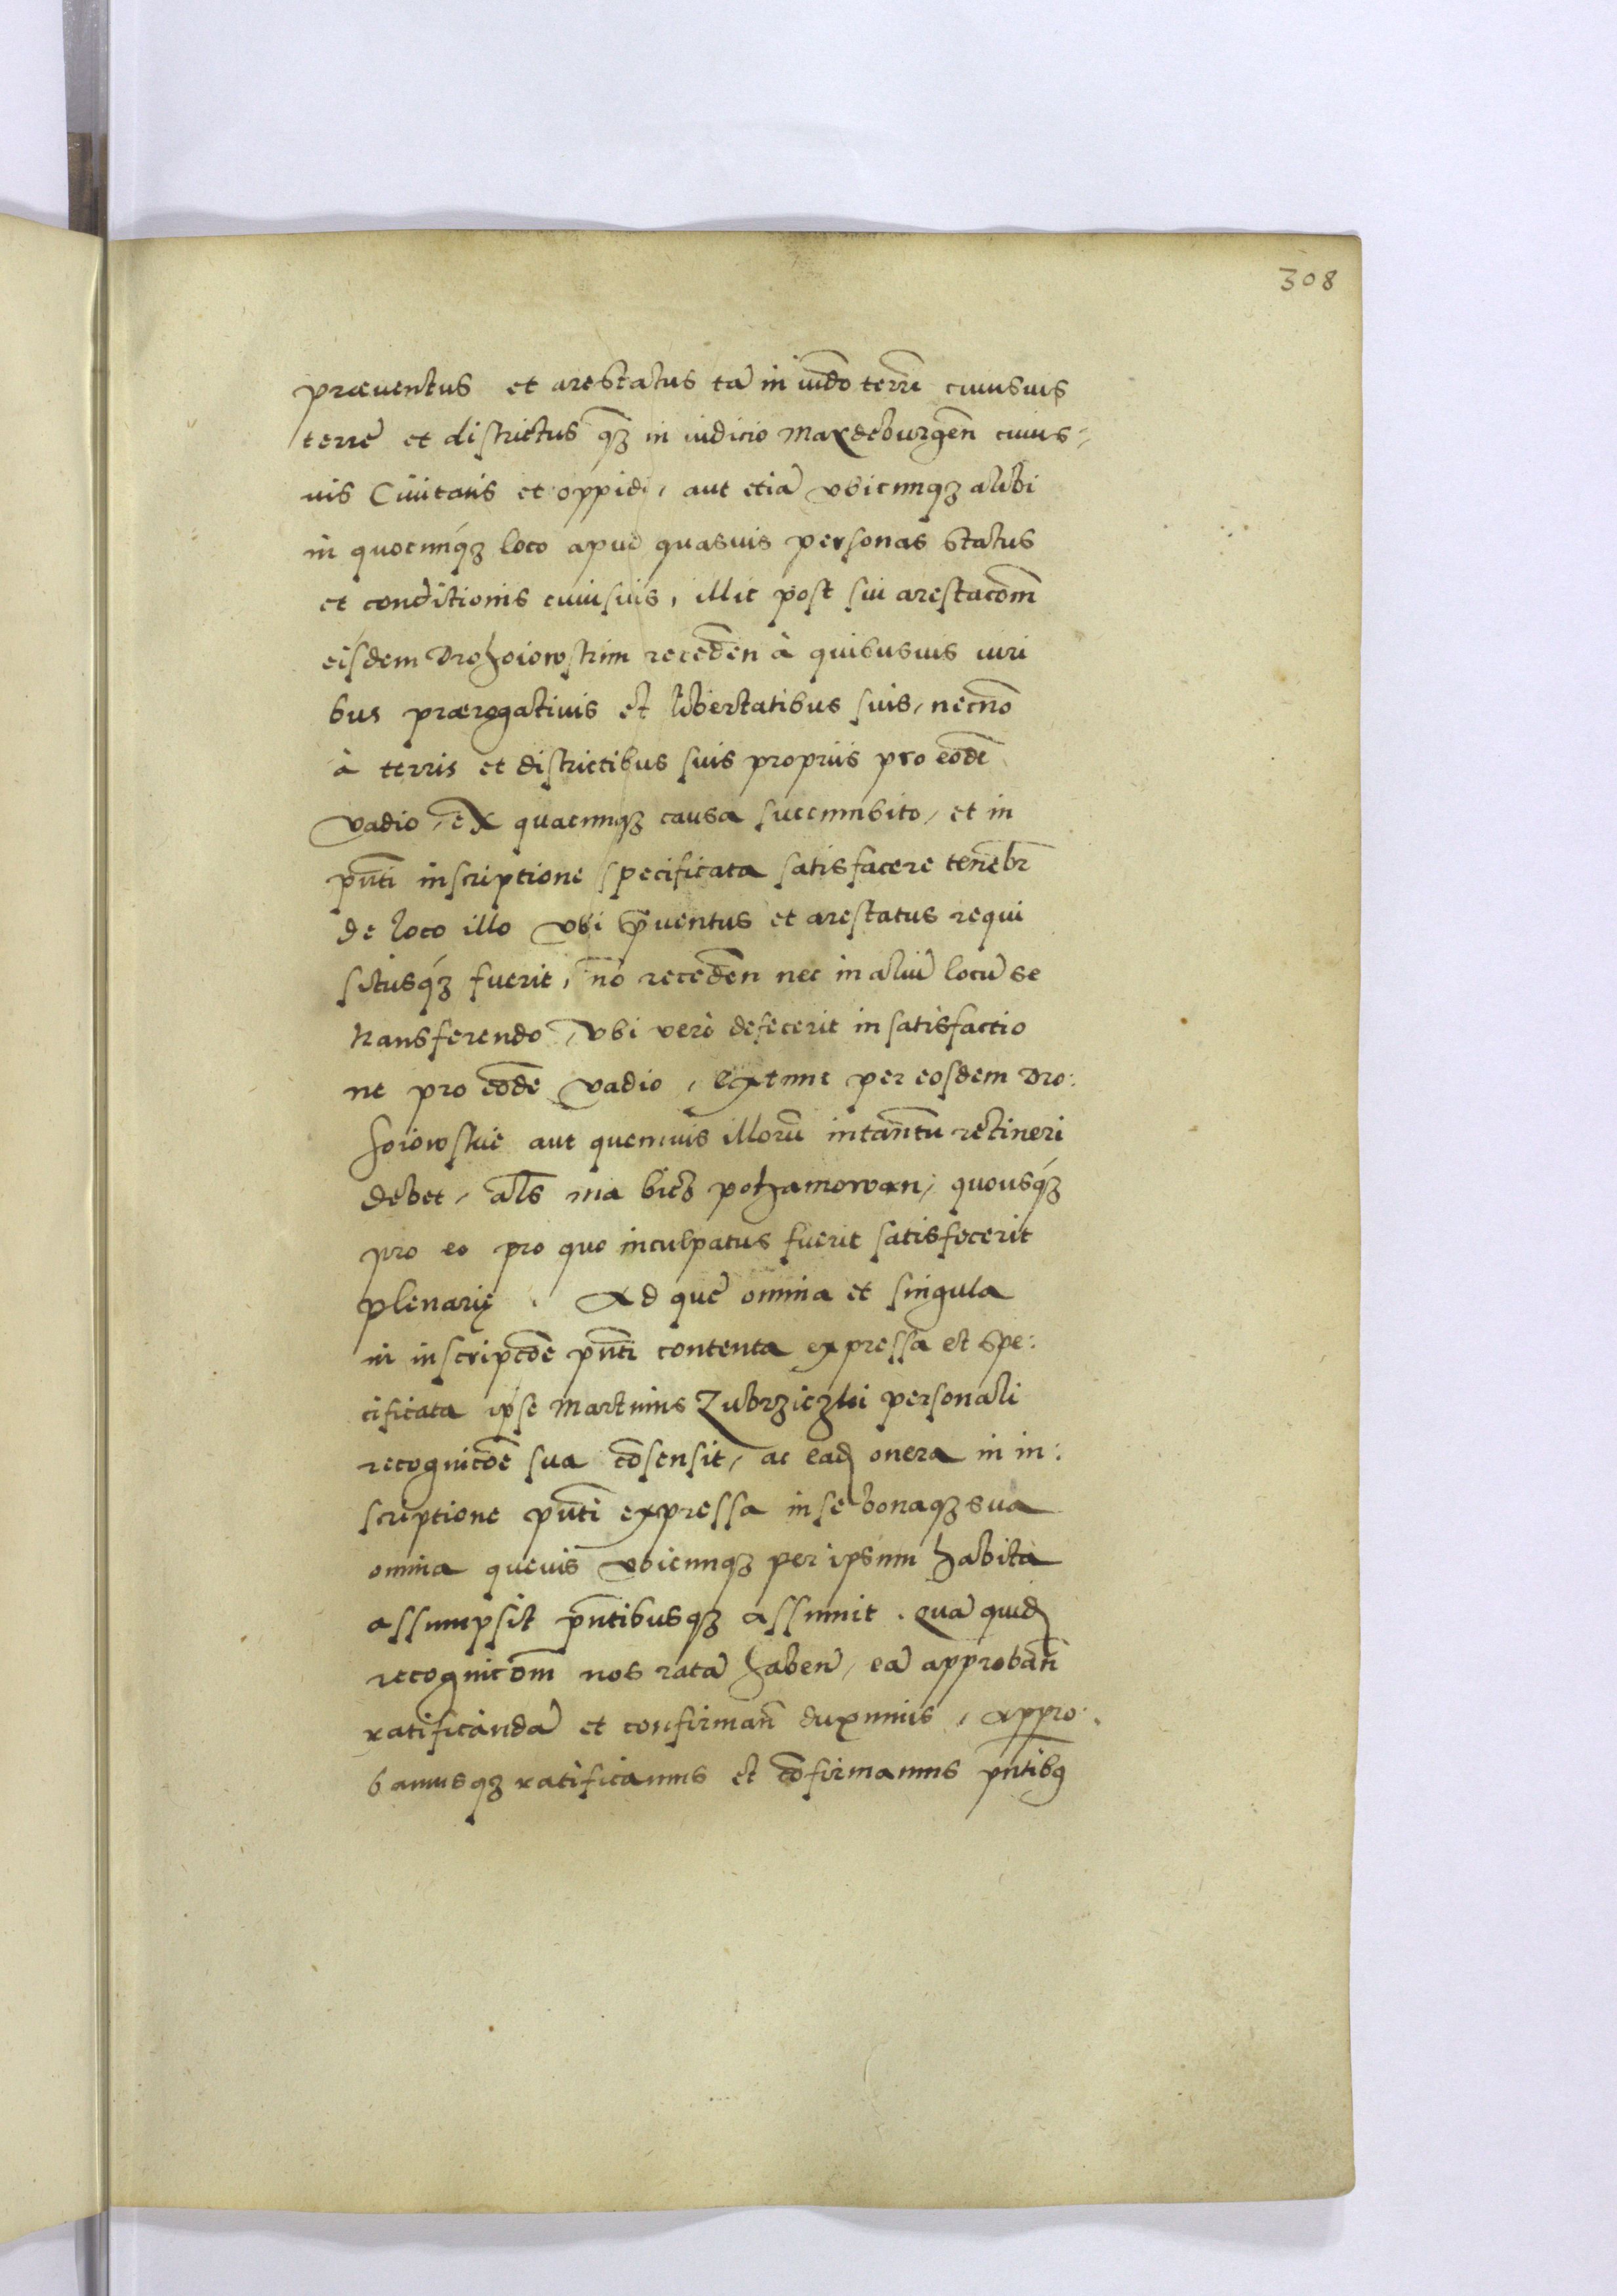 308
præuentus et arestatus tã in iudõ terrñ cuiusuis
terrę et districtus qȝ in iudicio Maydeburgeñ cuius-
uis Ciuitatis et oppidi, aut etiã vbicunqȝ alibi
in quocunqȝ loco apud quasuis personas status
et conditionis cuiusuis, illic post sui arestacõm
eisdem Drohoiowskim receden̄ à quibusuis iuri
bus prærogatiuis et libertatibus suis, necnõ
à terris et districtibus suis propriis pro eodẽ
vadio, ex quacunqȝ causa succumbito, et in
pñti inscriptione specificata satisfacere tenebr̃
de loco illo vbi p̃uentus et arestatus requi
situsqȝ fuerit, nõ receden̄ nec in aliũ locũ se
transferendo, vbi verò defecerit in satisfactio
ne pro eodẽ vadio, extunc per eosdem Dro:
hoiowskie aut quemuis illorũ intantũ retineri
debet, al̃s ma bicz pohamowan, quousqȝ
pro eo pro quo inculpatus fuerit satisfecerit
plenarię. Ad quę omnia et singula
in inscripcõe pñti contenta expressa et spe:
cificata ipse Martinus Zubrziczki personali
recognicõe sua cõsensit, ac ead onera in in:
scriptione pñti expressa in se bonaqȝ sua
omnia queuis vbicunqȝ per ipsum habita
assumpsit pñtibusqȝ assumit. Quã quid
recognicõm nos ratã haben̄, eã approban̄
ratificandã et confirman̄ duximus, appro:
bamusqȝ ratificamus et cõfirmamus pñtibq